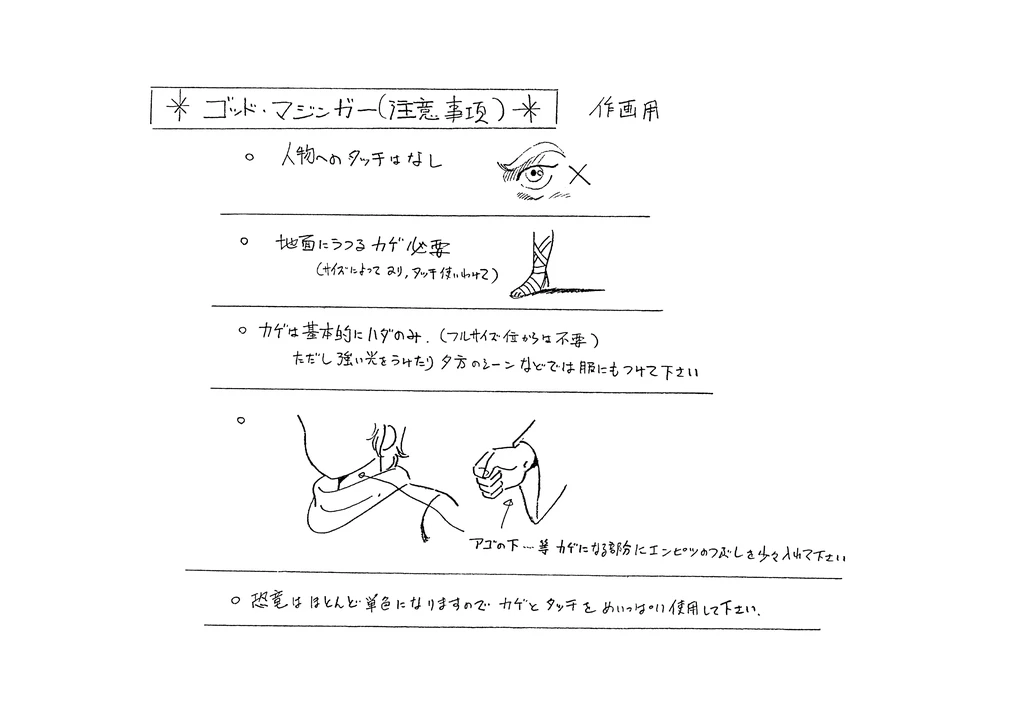 ＊ ゴッド・マジンガー(注意事項) ＊ 作画用
○ 人物へのタッチはなし
○ 地面にうつるカゲ必要
(サイズによって より,タッチ使いわけて)
○ カゲは基本的にハダのみ.(フルサイズ位からは不要)
ただし強い光をうけたり夕方のシーンなどでは服にもつけて下さい
○
アゴの下…等 カゲになる部分にエンピツのつぶしを少々入れて下さい
○ 恐竜はほとんど単色になりますので カゲとタッチをめいっぱい使用して下さい.